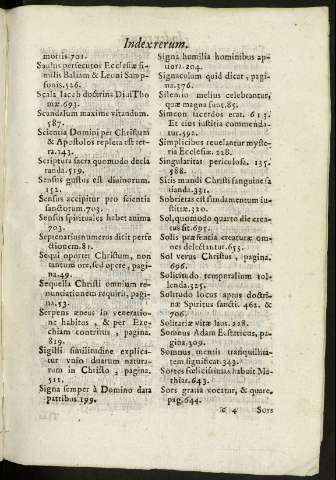 Index rerum.
mortis 701.
Saulus persecutor Ecclesiæ si-
milis Balaam & Leoni Samp-
sonis. 526.
Scala Iacob doctrina Diui Tho
mæ. 693.
Scandalum maxime vitandum.
587.
Scientia Domini per Christum
& Apostolos repleta est ter-
ra. 143.
Scriptura sacra quomodo decla
randa. 519.
Sensus gustus est diuinorum.
152.
Sensus accipitur pro scientia
sanctorum. 703.
Sensus spirituales habet anima
703.
Septenarius numerus dicit perfe
ctionem. 81.
Sequi oportet Christum, non
tantum ore, sed opere, pagi-
na. 49.
Sequella Christi omnium re-
nuntiationem requirit, pagi-
na. 53.
Serpens æneus in veneratio-
ne habitus, & per Eze-
chiam contritus, pagina.
819.
Sigilli similitudine explica-
tur vnio duarum natura-
rum in Christo, pagina.
511.
Signa semper à Domino data
patribus. 199.
Signa humilia hominibus ap-
tiora. 204.
Signaculum quid dicat, pagi-
na. 376.
Silentio melius celebrantur,
quæ magna sunt. 85.
Simeon sacerdos erat. 613.
Et eius iustitia commenda-
tur. 592.
Simplicibus reuelantur myste-
ria Ecclesiæ. 228.
Singularitas periculosa. 135.
588.
Sitis mundi Christi sanguine sa
tianda. 331.
Sobrietas est fundamentum iu-
stitiæ. 320.
Sol, quomodo quarto die crea-
tus sit. 695.
Solis præsentia creaturæ om-
nes delectantur. 653.
Sol verus Christus, pagina.
696.
Solicitudo temporalium tol-
lenda. 325.
Solitudo locus aptus doctri-
næ Spiritus sancti. 462. &
706.
Solitariæ vitæ laus. 228.
Somnus Adam Ecstaticus, pa-
gina. 309.
Somnus, mentis tranquillita-
tem significat. 343.
Sortes fœlicissimas habuit Ma-
thias. 643.
Sors gratia vocatur, & quare.
pag. 644.
4 Sors